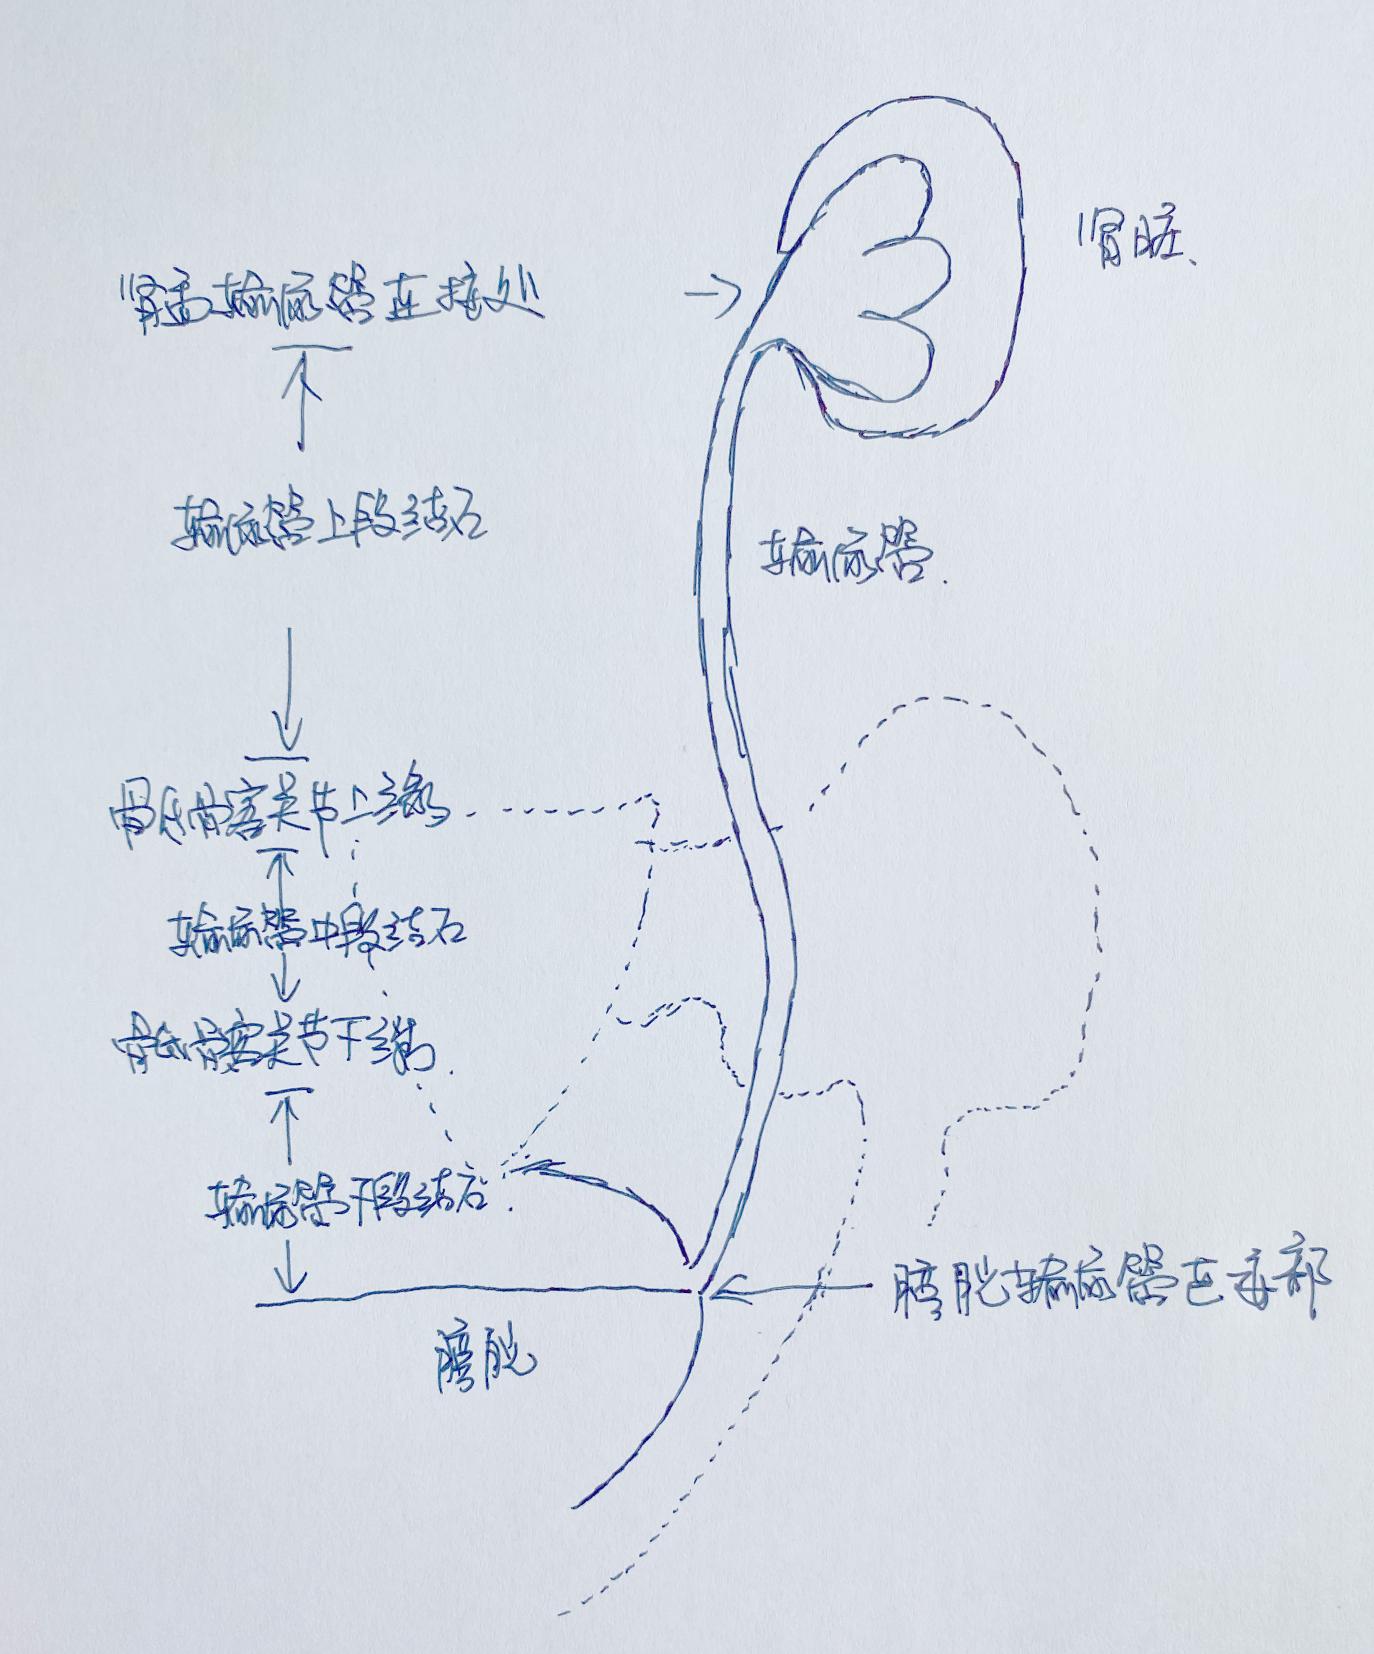 肾脏
肾盂输尿管连接处
输尿管上段结石
输尿管
骶髂关节上缘
输尿管中段结石
骶髂关节下缘
输尿管下段结石
膀胱输尿管连接部
膀胱